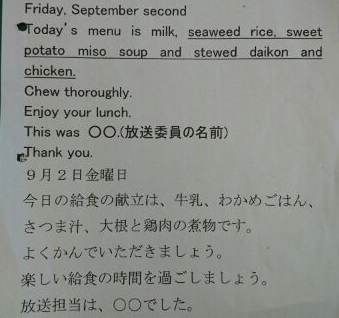 Friday, September second
Today's menu is milk, seaweed rice, sweet
potato miso soup and stewed daikon and
chicken.
Chew thoroughly.
Enjoy your lunch.
This was 〇〇.(放送委員の名前)
Thank you.
９月２日金曜日
今日の給食の献立は、牛乳、わかめごはん、
さつま汁、大根と鶏肉の煮物です。
よくかんでいただきましょう。
楽しい給食の時間を過ごしましょう。
放送担当は、〇〇でした。